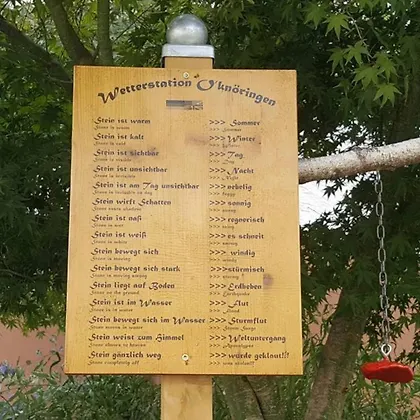 Wetterstation O'knöringen
Stein ist warm >>> Sommer
Stone is warm >>> Summer
Stein ist kalt >>> Winter
Stone is cold >>> Winter
Stein ist sichtbar >>> Tag
Stone is visible >>> Day
Stein ist unsichtbar >>> Nacht
Stone is invisible >>> Night
Stein ist am Tag unsichtbar >>> nebelig
Stone is invisible at day >>> foggy
Stein wirft Schatten >>> sonnig
>>> sunny
Stein ist naß >>> regnerisch
Stone is wet >>> rainy
Stein ist weiß >>> es schneit
Stone is white
Stein bewegt sich >>> windig
Stone is moving >>> windy
Stein bewegt sich stark >>> stürmisch
Stone is moving strong
Stein liegt auf Boden >>> Erdbeben
Stone on the ground >>> Earthquake
Stein ist im Wasser >>> Flut
Stone is in water >>> Flood
Stein bewegt sich im Wasser >>> Sturmflut
Stone moves in water >>> Storm Surge
Stein weist zum Himmel >>> Weltuntergang
Stone shows to heaven >>> Apocalypse
Stein gänzlich weg >>> wurde geklaut!!!
Stone completely off